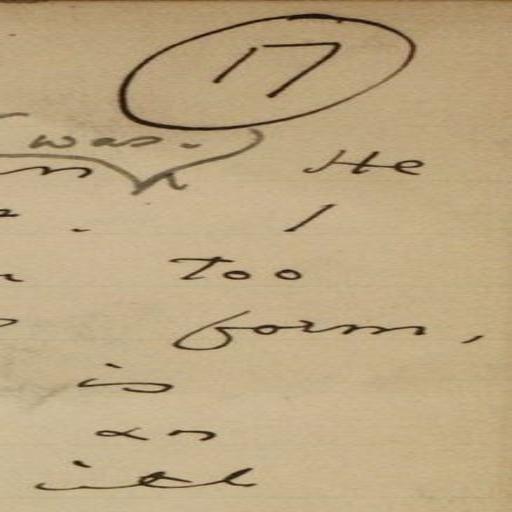 17
was.
He
I
too
form,
is
an